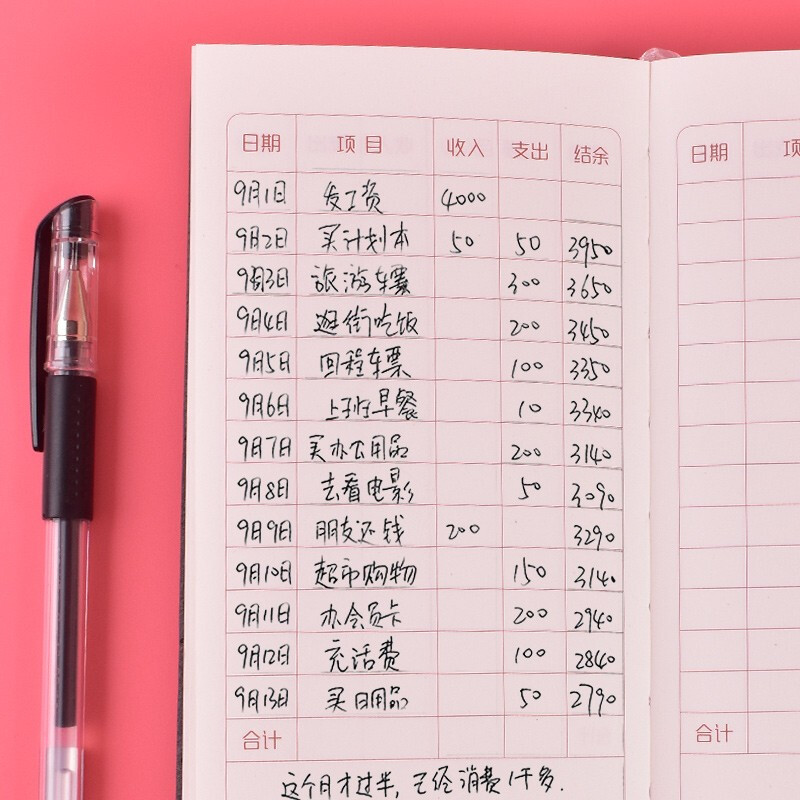 日期 项目 收入 支出 结余
9月1日 发工资 4000
9月2日 买计划本 50 50 3950
9月3日 旅游车票 300 3650
9月4日 逛街吃饭 200 3450
9月5日 回程车票 100 3350
9月6日 上班早餐 10 3340
9月7日 买办公用品 200 3140
9月8日 去看电影 50 3090
9月9日 朋友还钱 200 3290
9月10日 超市购物 150 3140
9月11日 办会员卡 200 2940
9月12日 充话费 100 2840
9月13日 买日用品 50 2790
合计
这个月才过半，已经消费1千多.
日期 项
合计